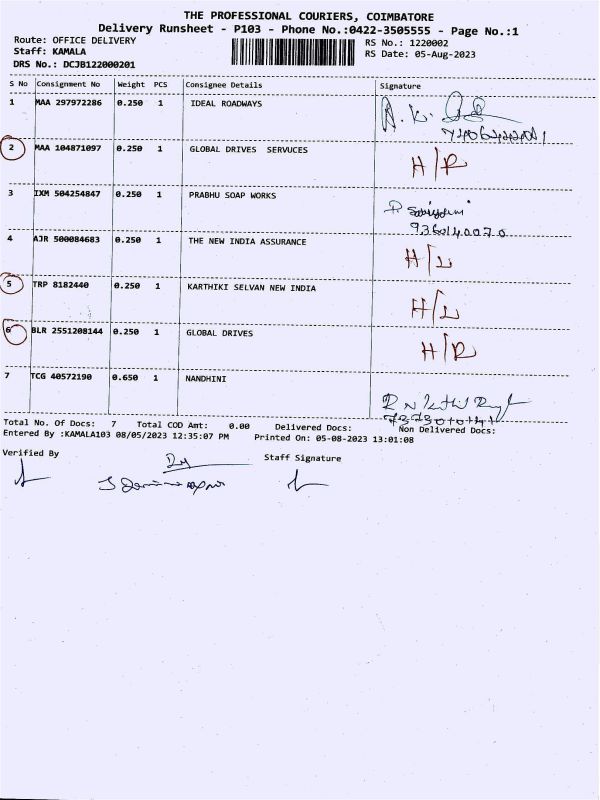 THE PROFESSIONAL COURIERS, COIMBATORE
Delivery Runsheet - P103 - Phone No.:0422-3505555 - Page No.:1
Route: OFFICE DELIVERY
Staff: KAMALA
DRS No.: DCJB122000201
RS No.: 1220002
RS Date: 05-Aug-2023
S No Consignment No Weight PCS Consignee Details Signature
1 MAA 297972286 0.250 1 IDEAL ROADWAYS
2 MAA 104871097 0.250 1 GLOBAL DRIVES SERVUCES H/R
3 IXM 504254847 0.250 1 PRABHU SOAP WORKS
4 AJR 500084683 0.250 1 THE NEW INDIA ASSURANCE H/L
5 TRP 8182440 0.250 1 KARTHIKI SELVAN NEW INDIA H/L
6 BLR 2551208144 0.250 1 GLOBAL DRIVES H/R
7 TCG 40572190 0.650 1 NANDHINI
Total No. Of Docs: 7 Total COD Amt: 0.00 Delivered Docs: Non Delivered Docs:
Entered By :KAMALA103 08/05/2023 12:35:07 PM Printed On: 05-08-2023 13:01:08
Verified By Staff Signature